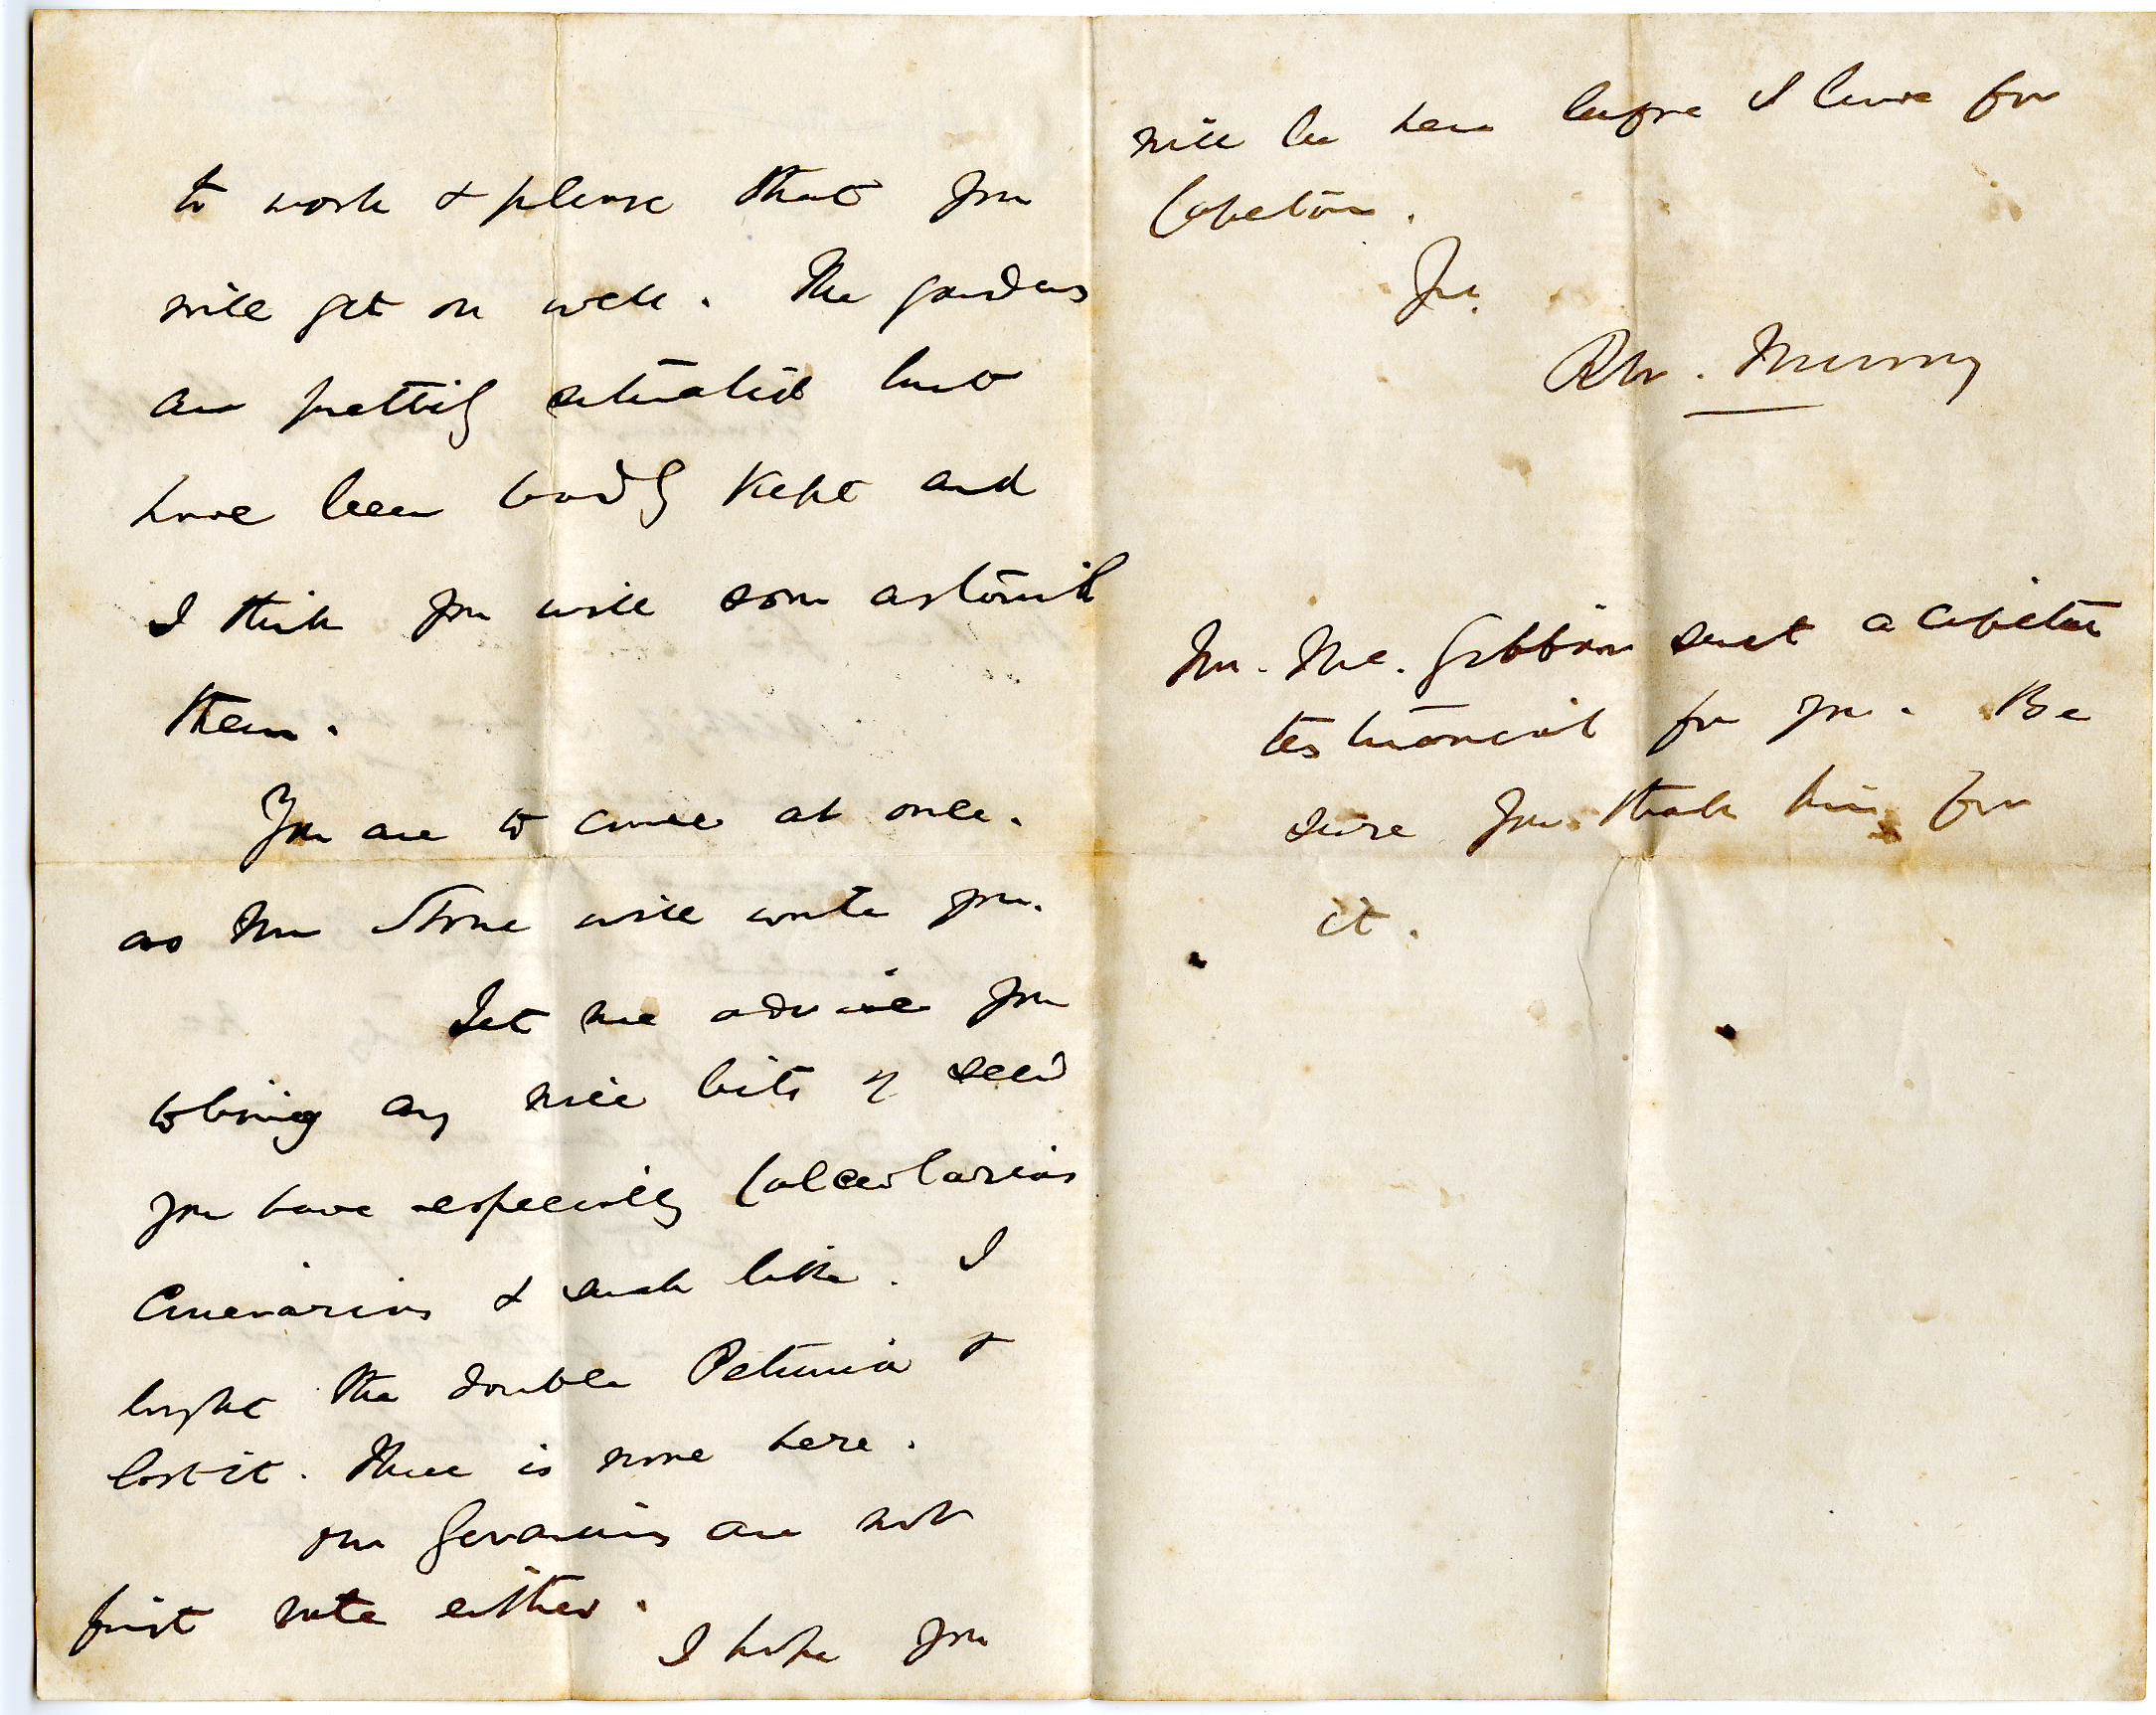 to work & please that you
will get on well. The gardens
are prettily situated but
have been badly kept and
I think you will soon astonish
them.
You are to come at once.
as Mr Stone will write you.
Let me advise you
to bring any nice bits of seed
you have especially Calceolarias
Cinerarias & such like. I
bught the double Petunia &
lost it. There is none here.
Our Geraniums are not
first rate either.
I hope you
will be here before I leave for
Capetown.
Yrs.
Murray
Mr. Mc. Gibbon sent a capital
testimonial for you. Be
sure you thank him for
it.